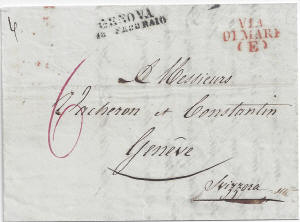 GENOVA
18 FEBBRAIO
VIA
DI MARE
(E)
A Messieurs
Vacheron et Constantin
Genève
Svizzera
6